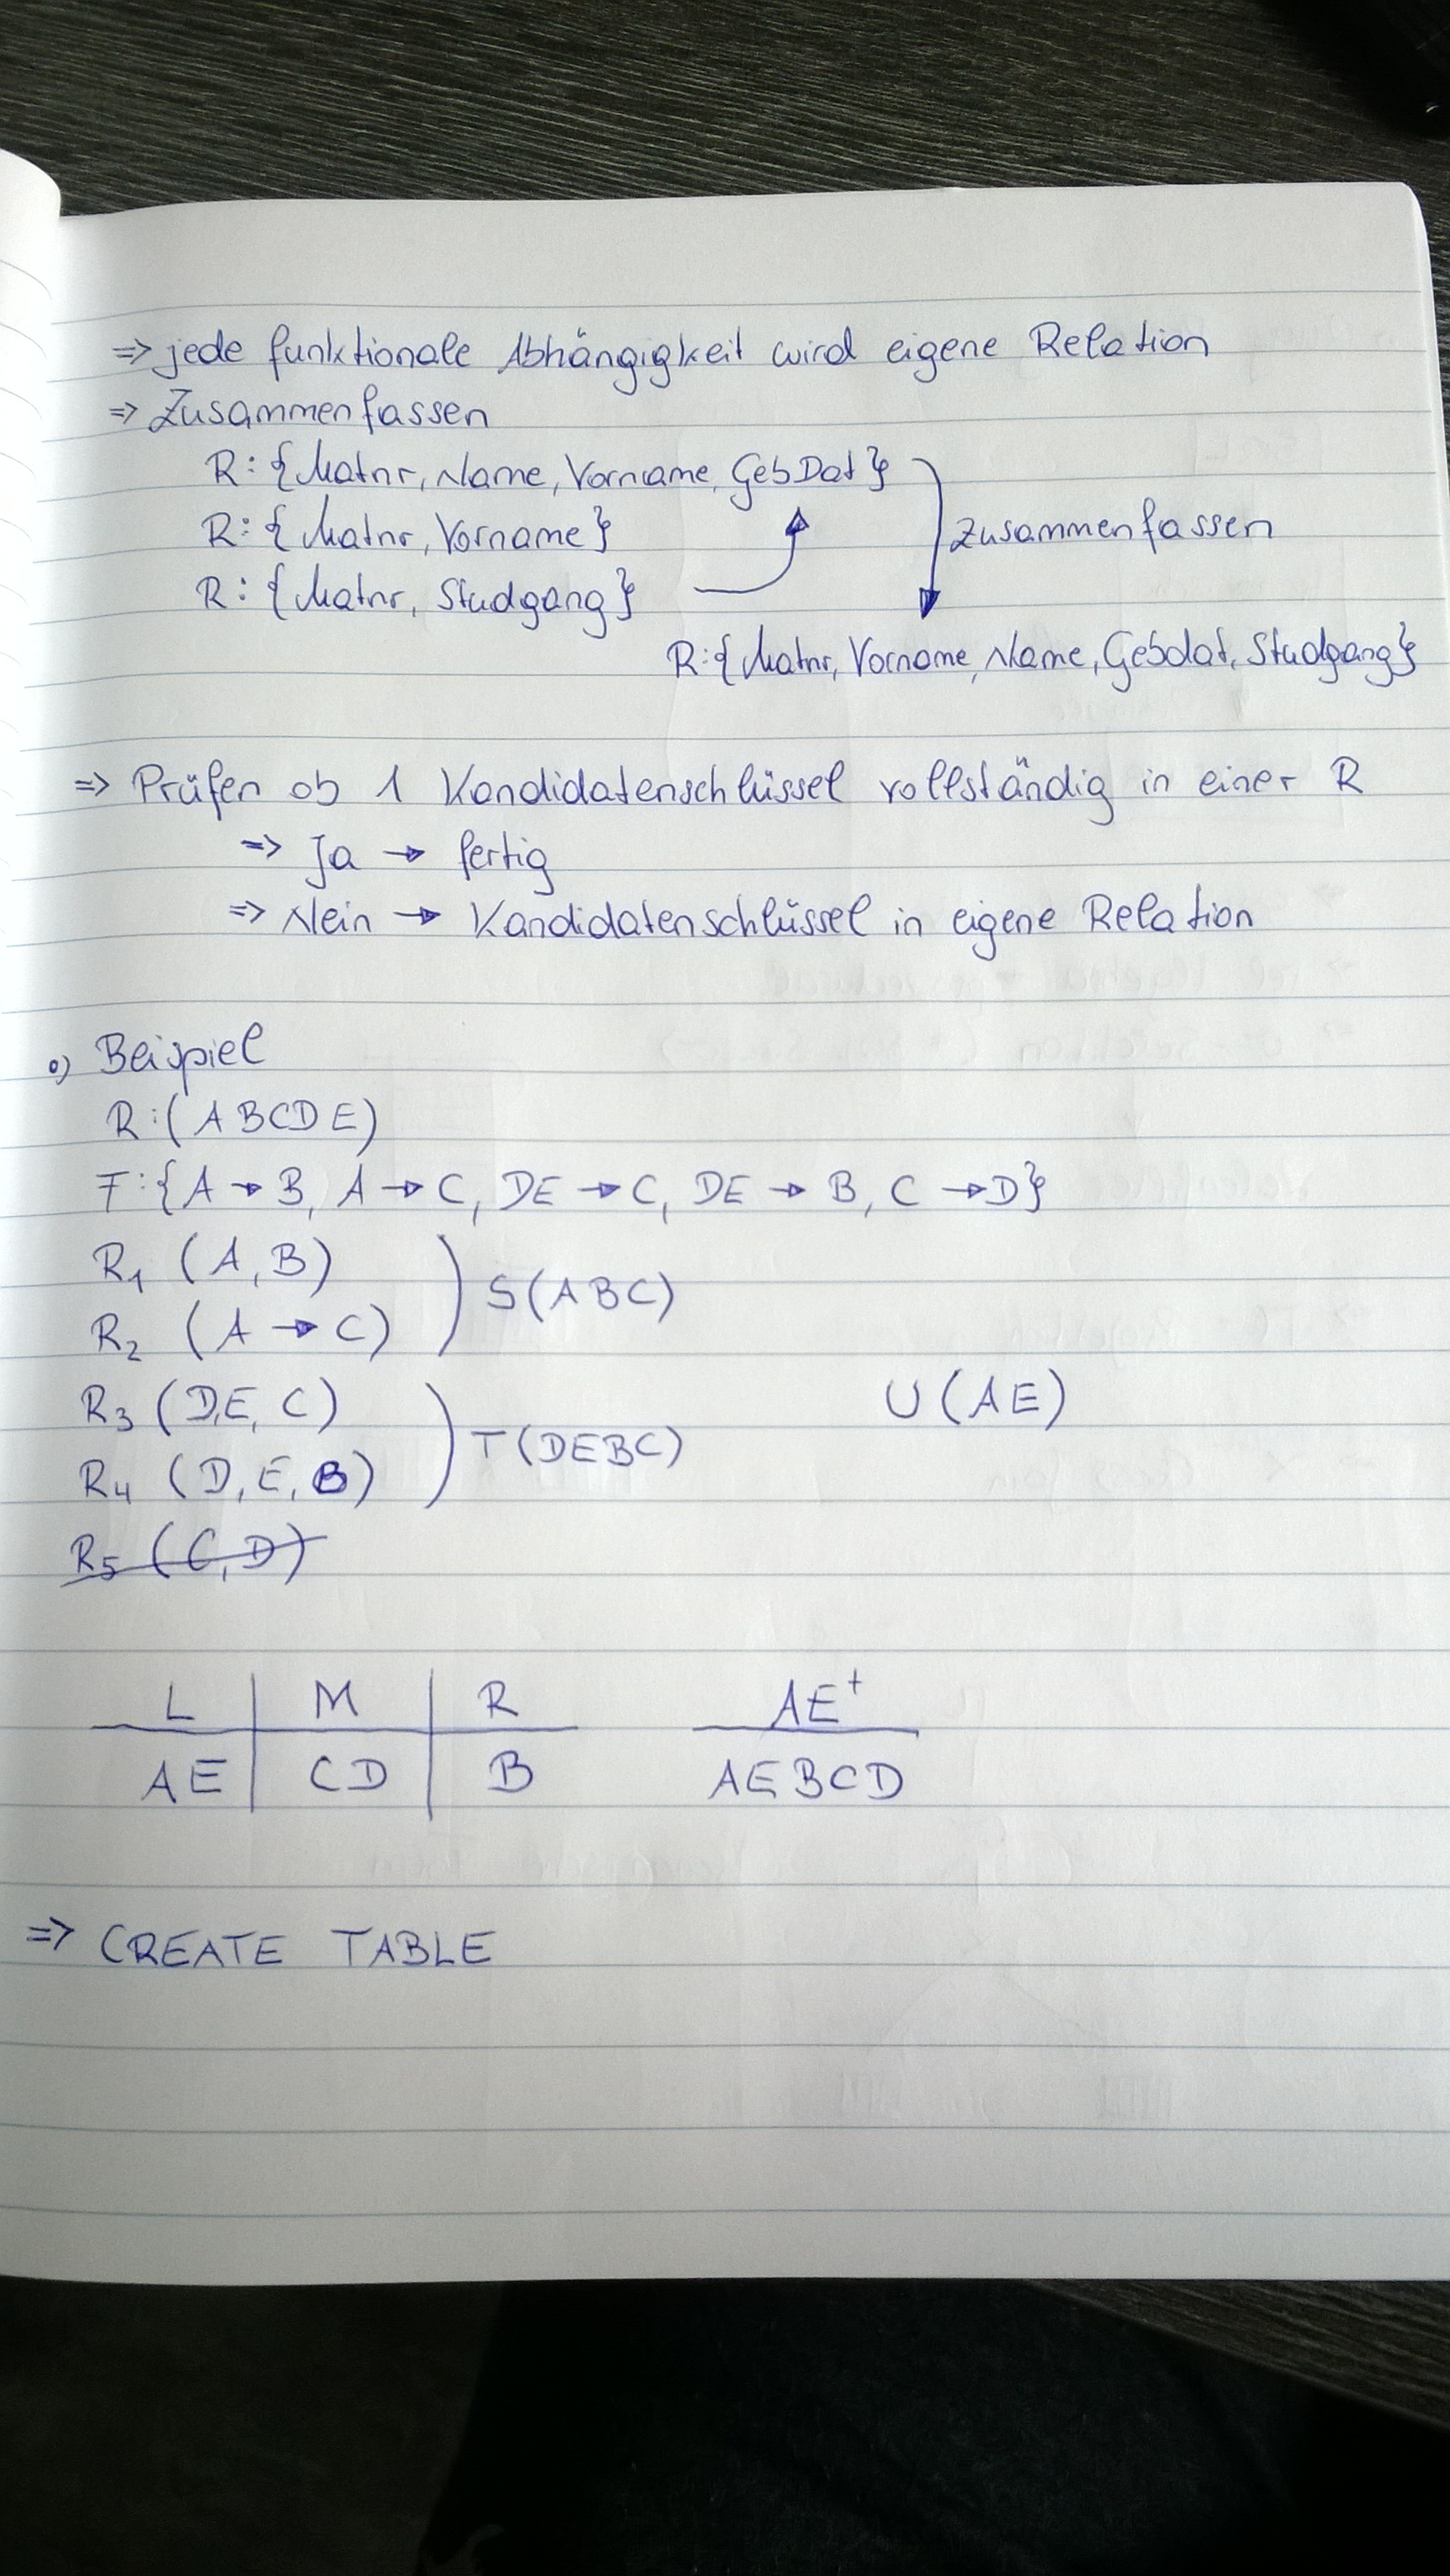 => jede funktionale Abhängigkeit wird eigene Relation
=> Zusammenfassen
R: {Matnr, Name, Vorname, GebDat}
R: {Matnr, Vorname}
zusammenfassen
R: {Matnr, Studgang}
R: {Matnr, Vorname, Name, Gebdat, Studgang}
=> Prüfen ob 1 Kandidatenschlüssel vollständig in einer R
=> Ja → fertig
=> Nein → Kandidatenschlüssel in eigene Relation
o) Beispiel
R: (ABCDE)
F: {A → B, A → C, DE → C, DE → B, C → D}
R1 (A, B)
S(ABC)
R2 (A → C)
R3 (D,E, C)
U(AE)
T(DEBC)
R4 (D, E, B)
R5 (C, D)
L M R AE+
AE CD B AEBCD
=> CREATE TABLE